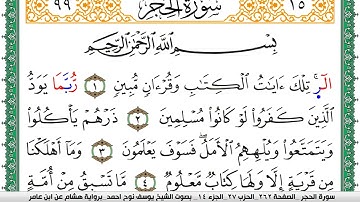 ٩٩ سُورَةُ الحِجْرِ ١٥
بِسْمِ اللَّهِ الرَّحْمَٰنِ الرَّحِيمِ
الٓرۚ تِلْكَ ءَايَٰتُ الْكِتَٰبِ وَقُرْءَانٍ مُّبِينٍ ١ رُّبَمَا يَوَدُّ
الَّذِينَ كَفَرُوا۟ لَوْ كَانُوا۟ مُسْلِمِينَ ٢ ذَرْهُمْ يَأْكُلُوا۟
وَيَتَمَتَّعُوا۟ وَيُلْهِهِمُ الْأَمَلُۖ فَسَوْفَ يَعْلَمُونَ ٣ وَمَا أَهْلَكْنَا
مِن قَرْيَةٍ إِلَّا وَلَهَا كِتَابٌ مَّعْلُومٌ ٤ مَّا تَسْبِقُ مِنْ أُمَّةٍ
سورة الحجر _ الصفحة ٢٦٢ _ الحزب ٢٧ _ الجزء ١٤ _ بصوت الشيخ يوسف نوح احمد _ برواية هشام عن ابن عامر